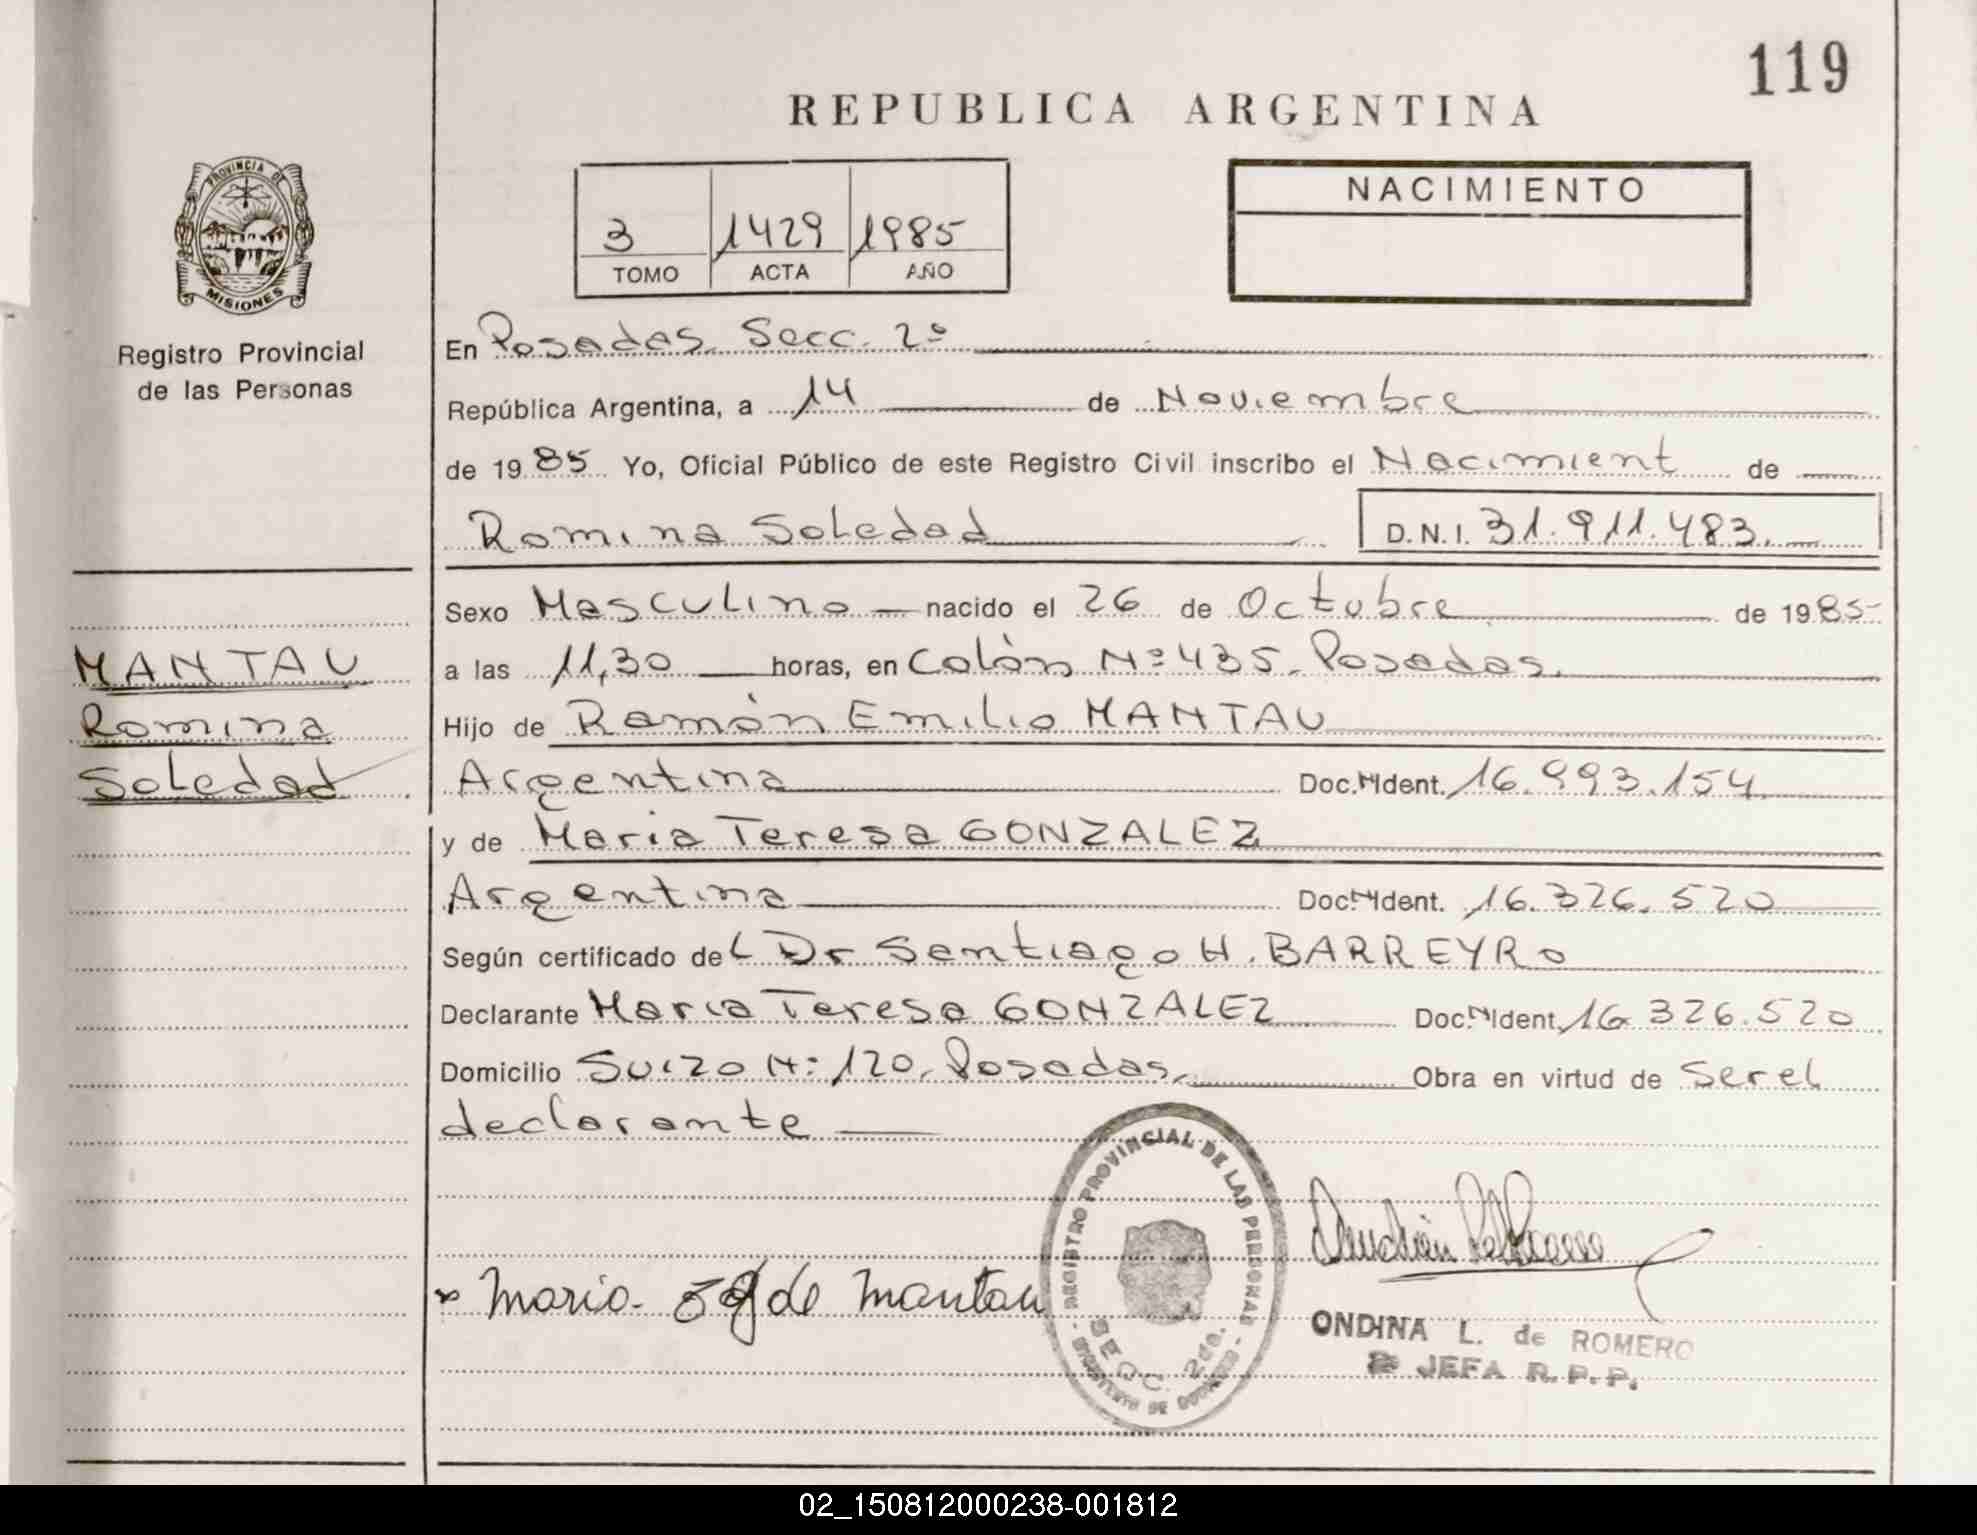 119
REPUBLICA ARGENTINA
PROVINCIA DE
MISIONES
Registro Provincial
de las Personas
3 1429 1985
TOMO ACTA AÑO
NACIMIENTO
En Posadas. Secc. 2º
República Argentina, a 14 de Noviembre
de 1985 Yo, Oficial Público de este Registro Civil inscribo el Nacimient de
Romina Soledad D.N.I. 31.911.483.
Sexo Masculino nacido el 26 de Octubre de 1985
a las 11,30 horas, en Colón Nº 435. Posadas.
MANTAU
Romina
Soledad
Hijo de Ramón Emilio MANTAU
Argentina Doc. Ident. 16.993.154
y de Maria Teresa GONZALEZ
Argentina Doc. Ident. 16.326.520
Según certificado del Dr Santiago H. BARREYRO
Declarante Maria Teresa GONZALEZ Doc. Ident. 16.326.520
Domicilio Suizo Nº 120, Posadas, Obra en virtud de Ser el
declarante
REGISTRO PROVINCIAL DE LAS PERSONAS
SECC. 2da.
Maria de Mantau
ONDINA L. de ROMERO
JEFA R.P.P.
02_150812000238-001812